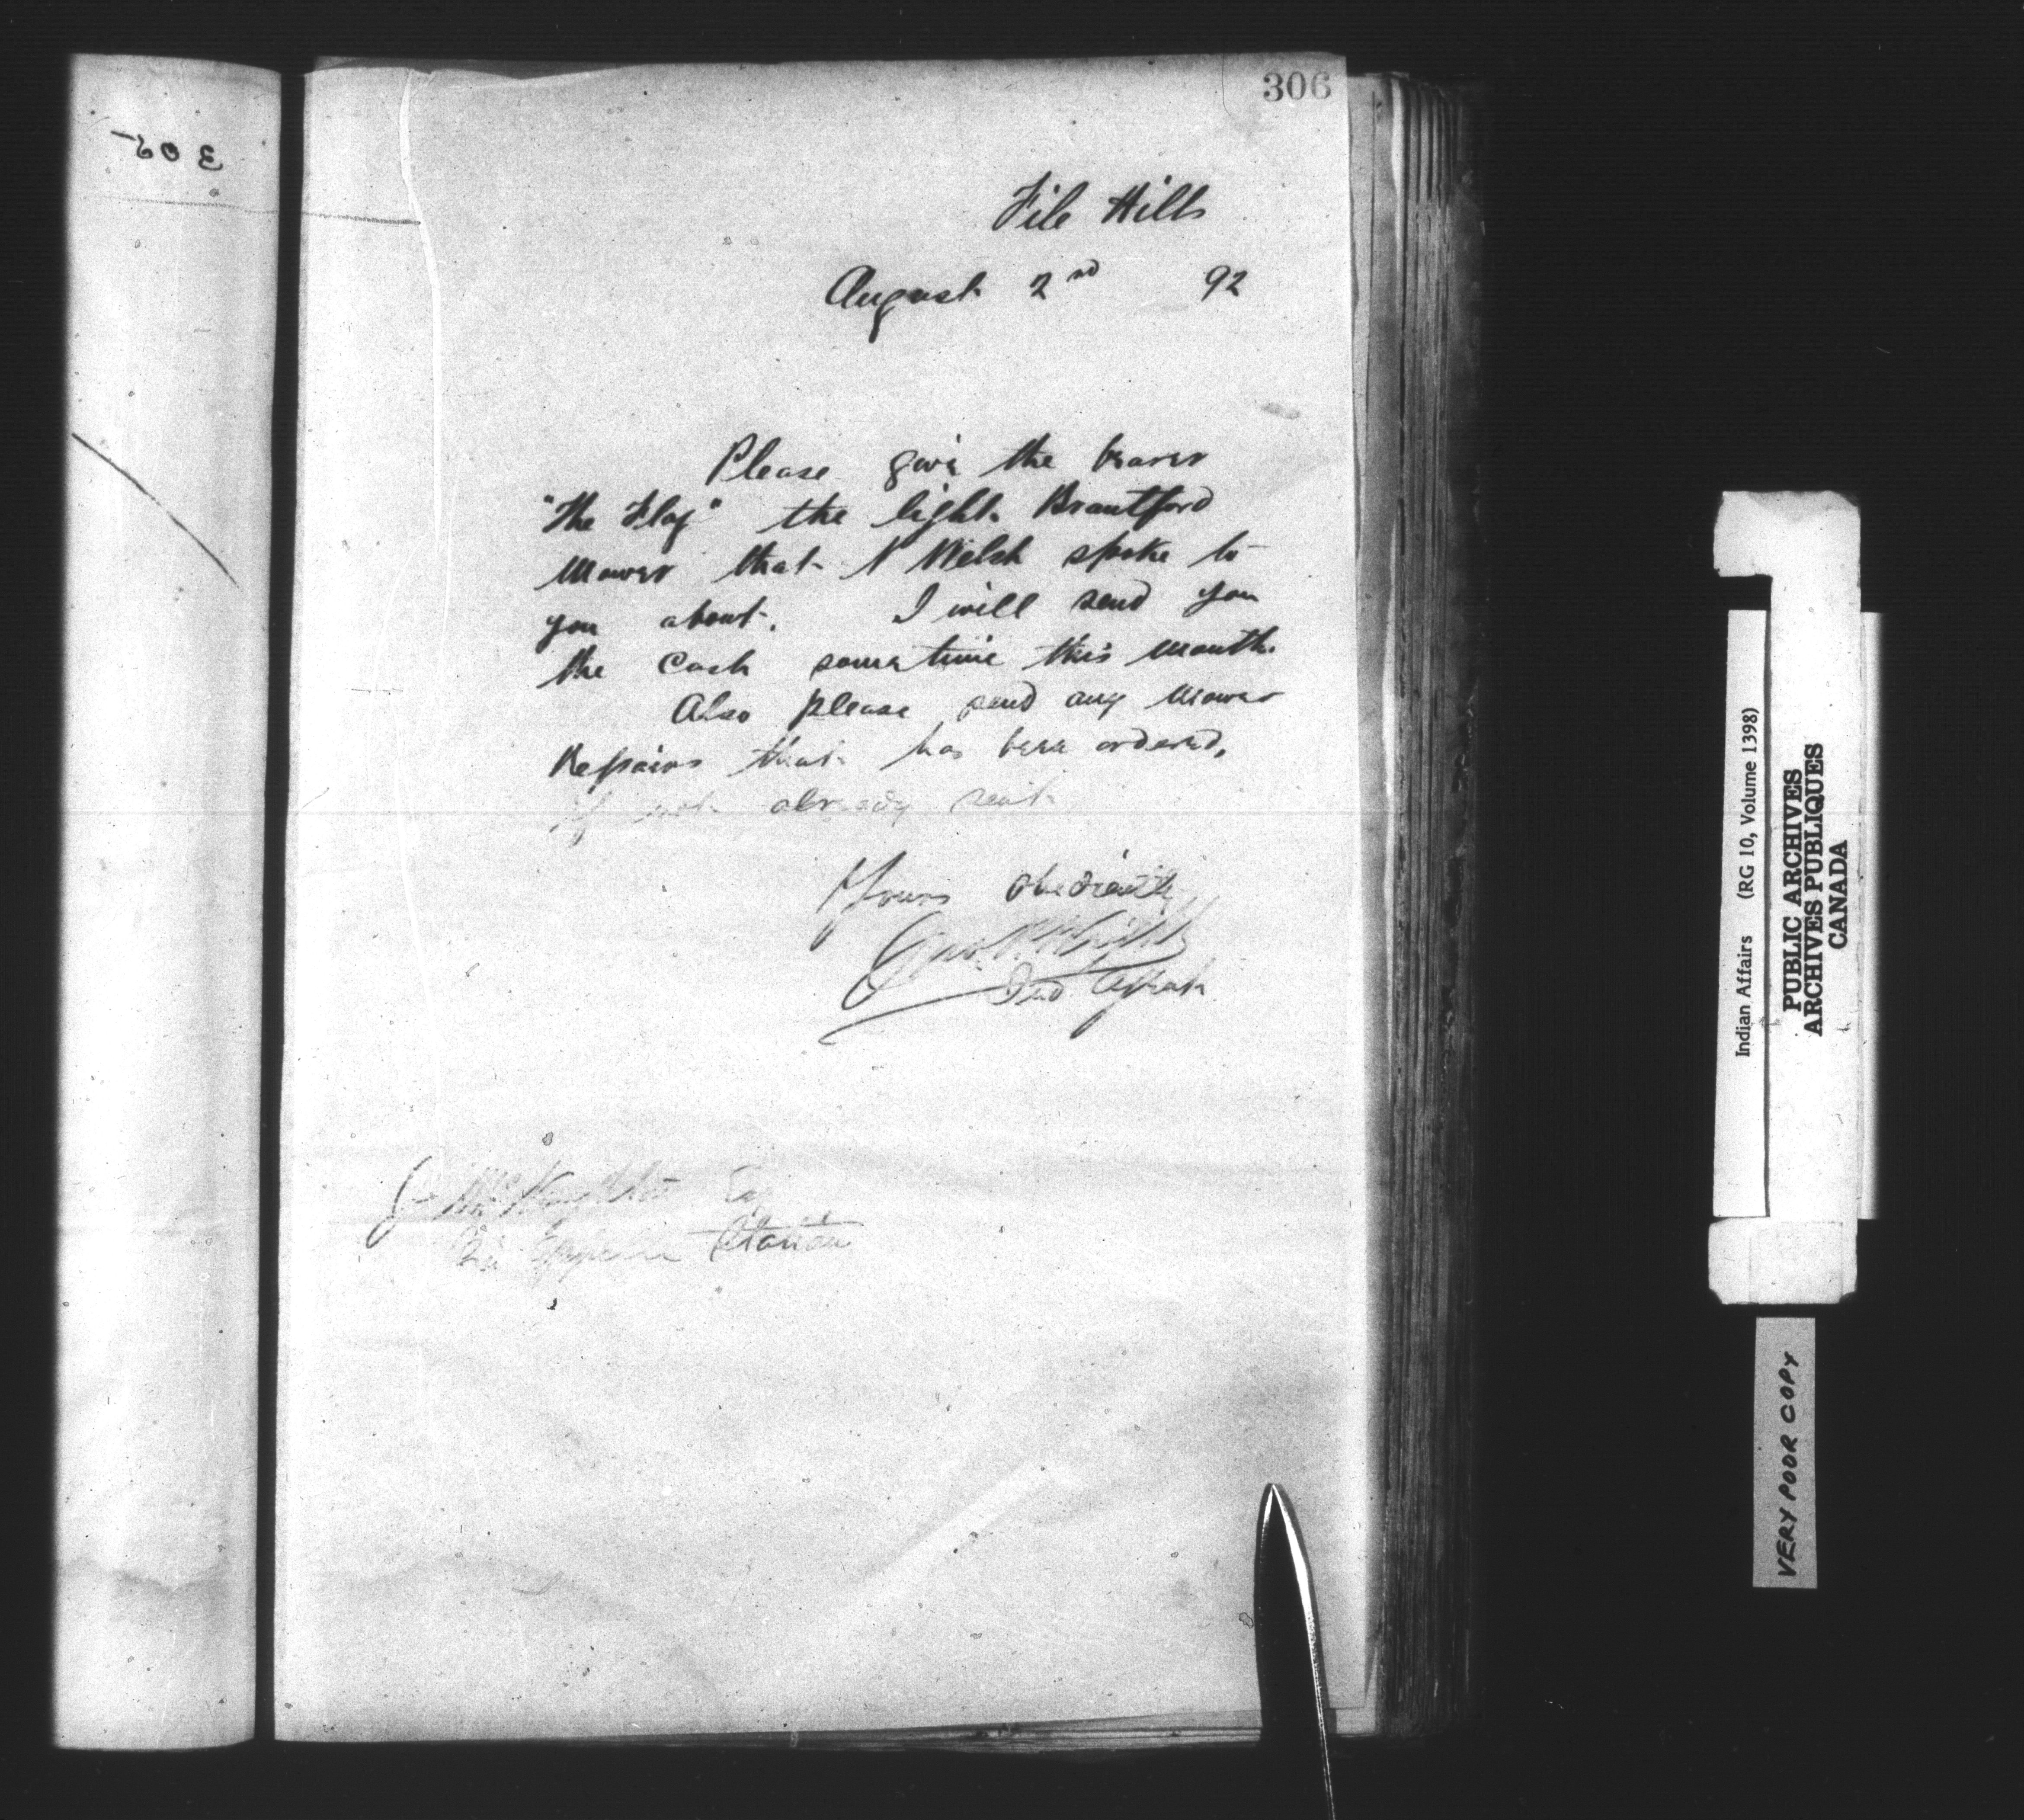 306
File Hills
August 2nd 92
Please give the bearer
"The Flag" the light Brantford
Mower that N Welsh spoke to
you about. I will send you
the Cash some time this month.
Also please send any Mower
Repairs that has been ordered,
if not already sent
Yours obediently
Ind Agent
J McNaughton Esq
Qu'Appelle Station
Indian Affairs (RG 10, Volume 1398)
PUBLIC ARCHIVES
ARCHIVES PUBLIQUES
CANADA
VERY POOR COPY